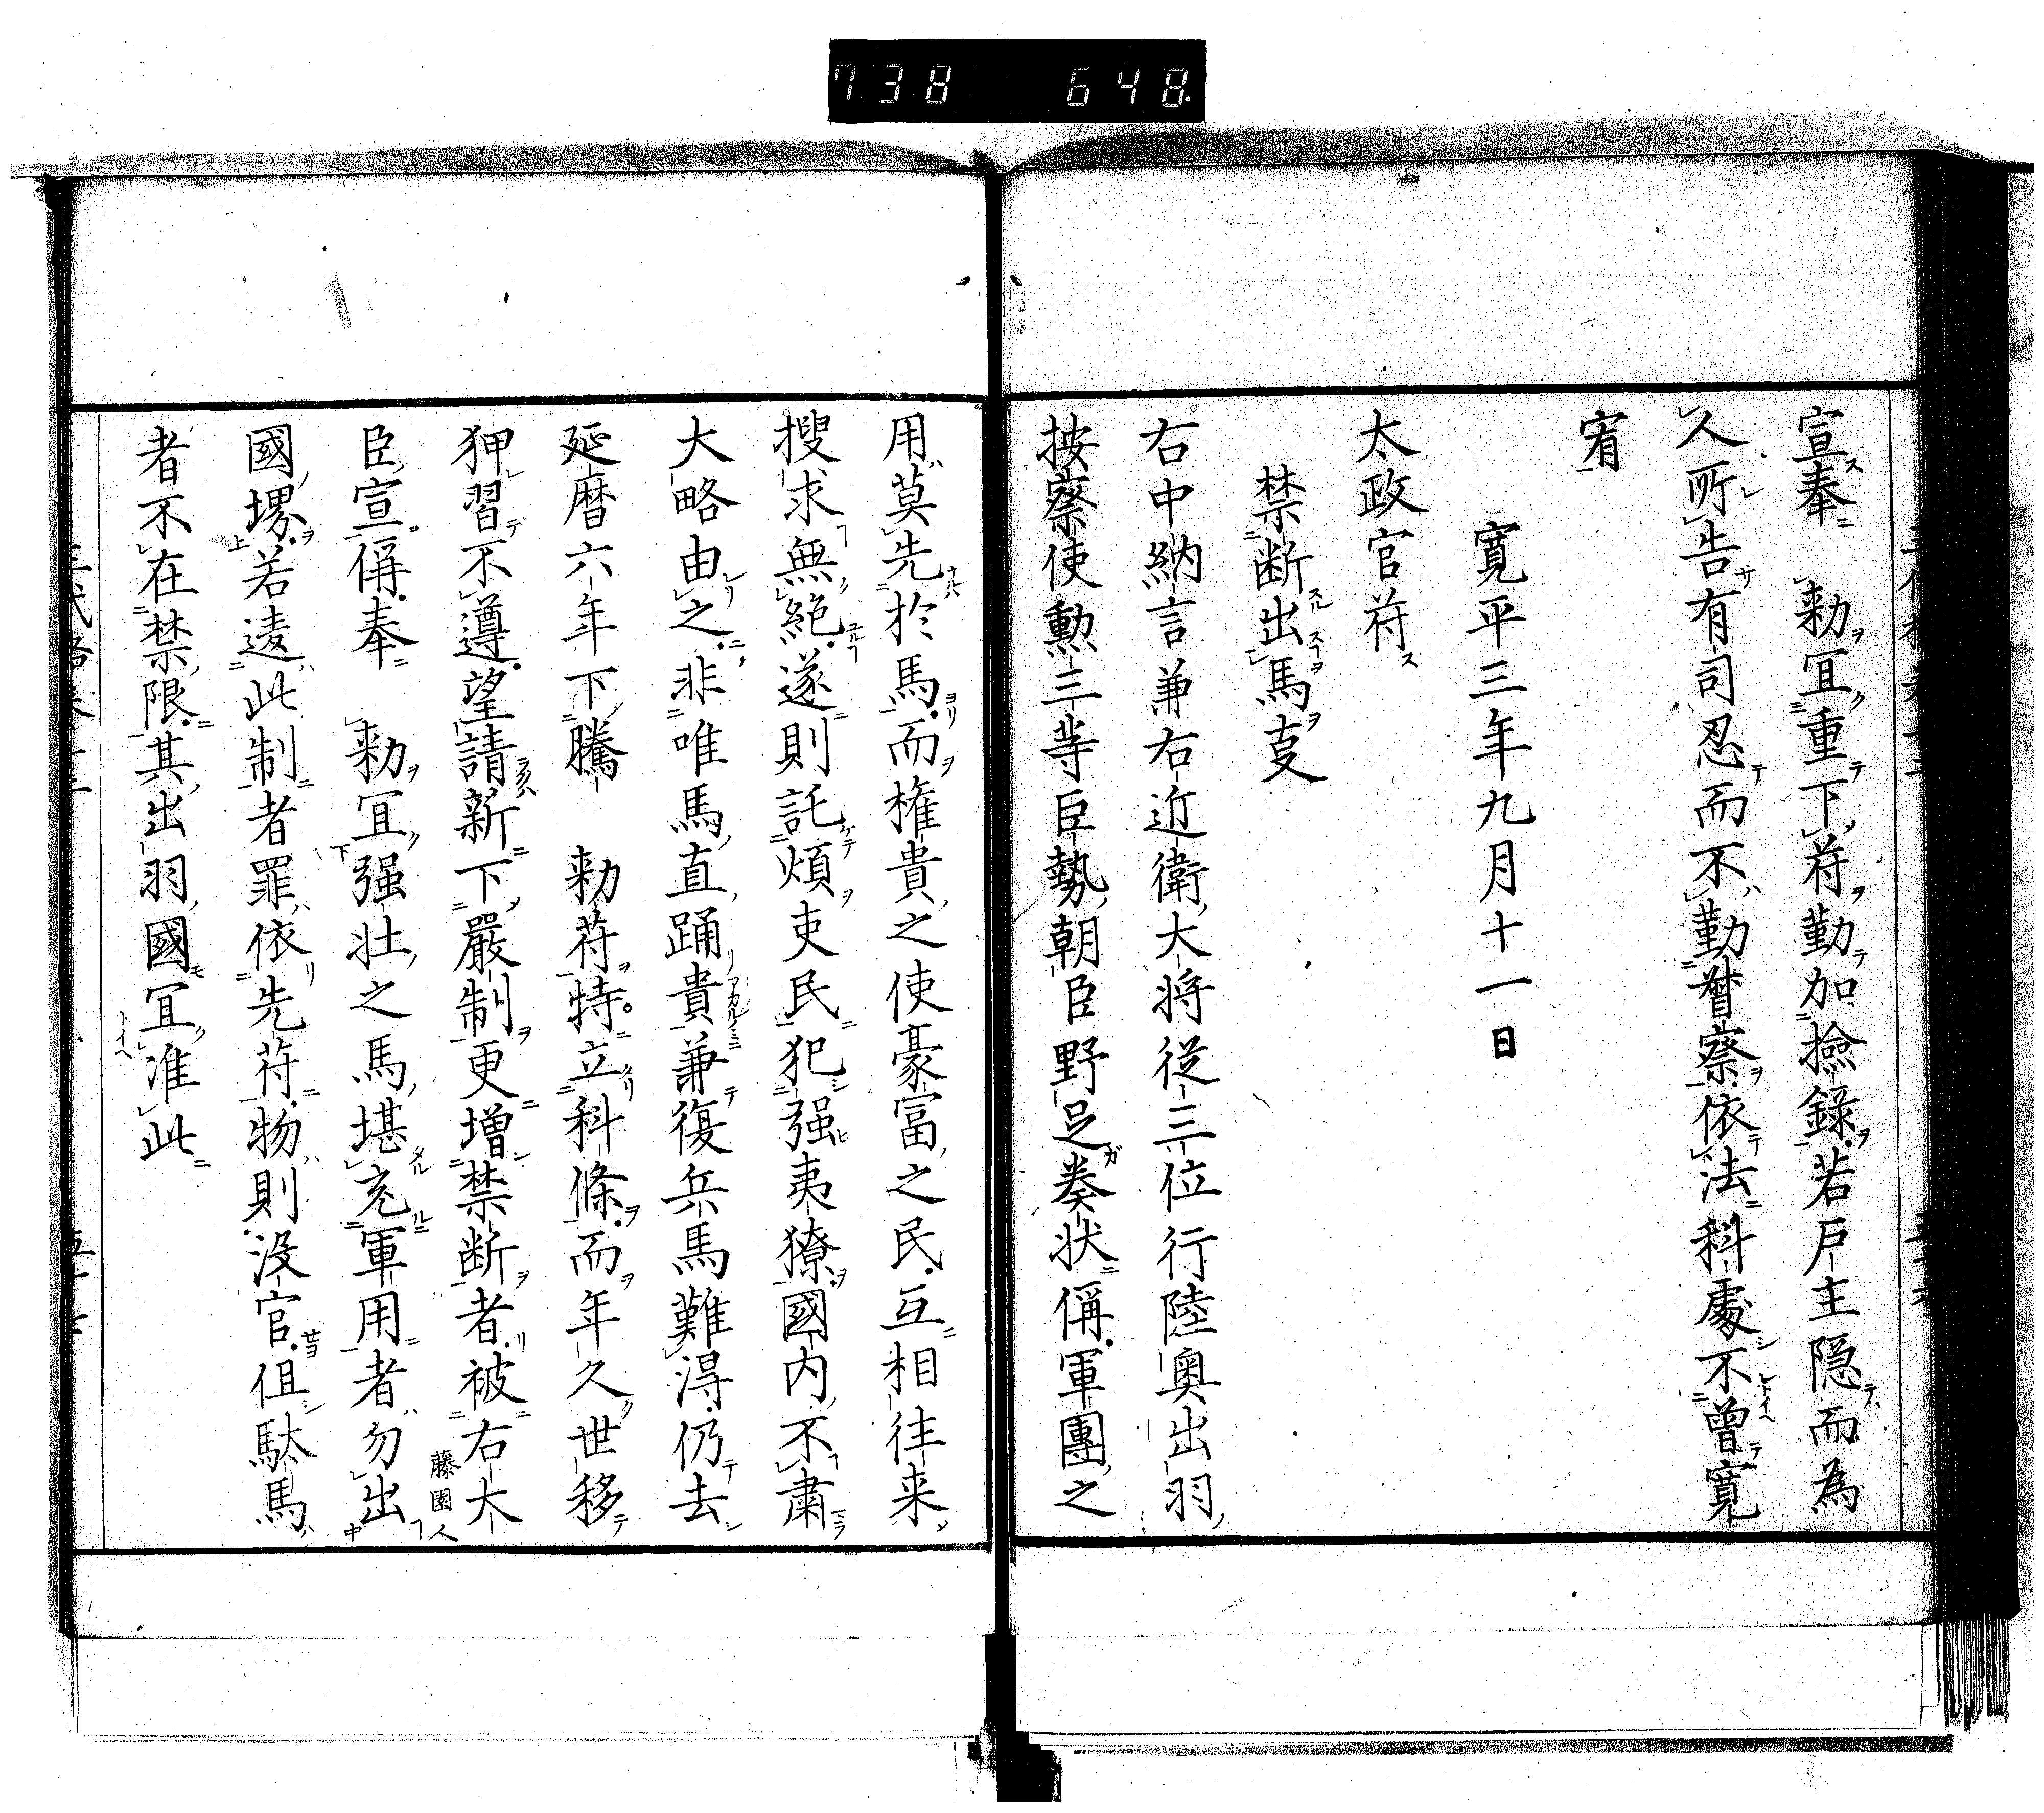 738 648.
宣奉　勅冝重下符勤加撿録若戸主隠而為
人所告有司忍而不勤督察依法科處不曾寛
宥
寛平三年九月十一日
太政官符
禁断出馬叓
右中納言兼右近衛大将從三位行陸奥出羽
按察使勲三等巨勢朝臣野足奏状偁軍團之
用莫先於馬而権貴之使豪富之民互相往来
搜求無絶遂則託煩吏民犯强夷獠國内不肅
大略由之非唯馬直踊貴兼復兵馬難得仍去
延暦六年下騰　勅符特立科條而年久世移
狎習不遵望請新下嚴制更増禁断者被右大
藤園人
臣宣偁奉　勅冝强壮之馬堪充軍用者勿出
國堺若違此制者罪依先符物則没官但駄馬
者不在禁限其出羽國冝准此